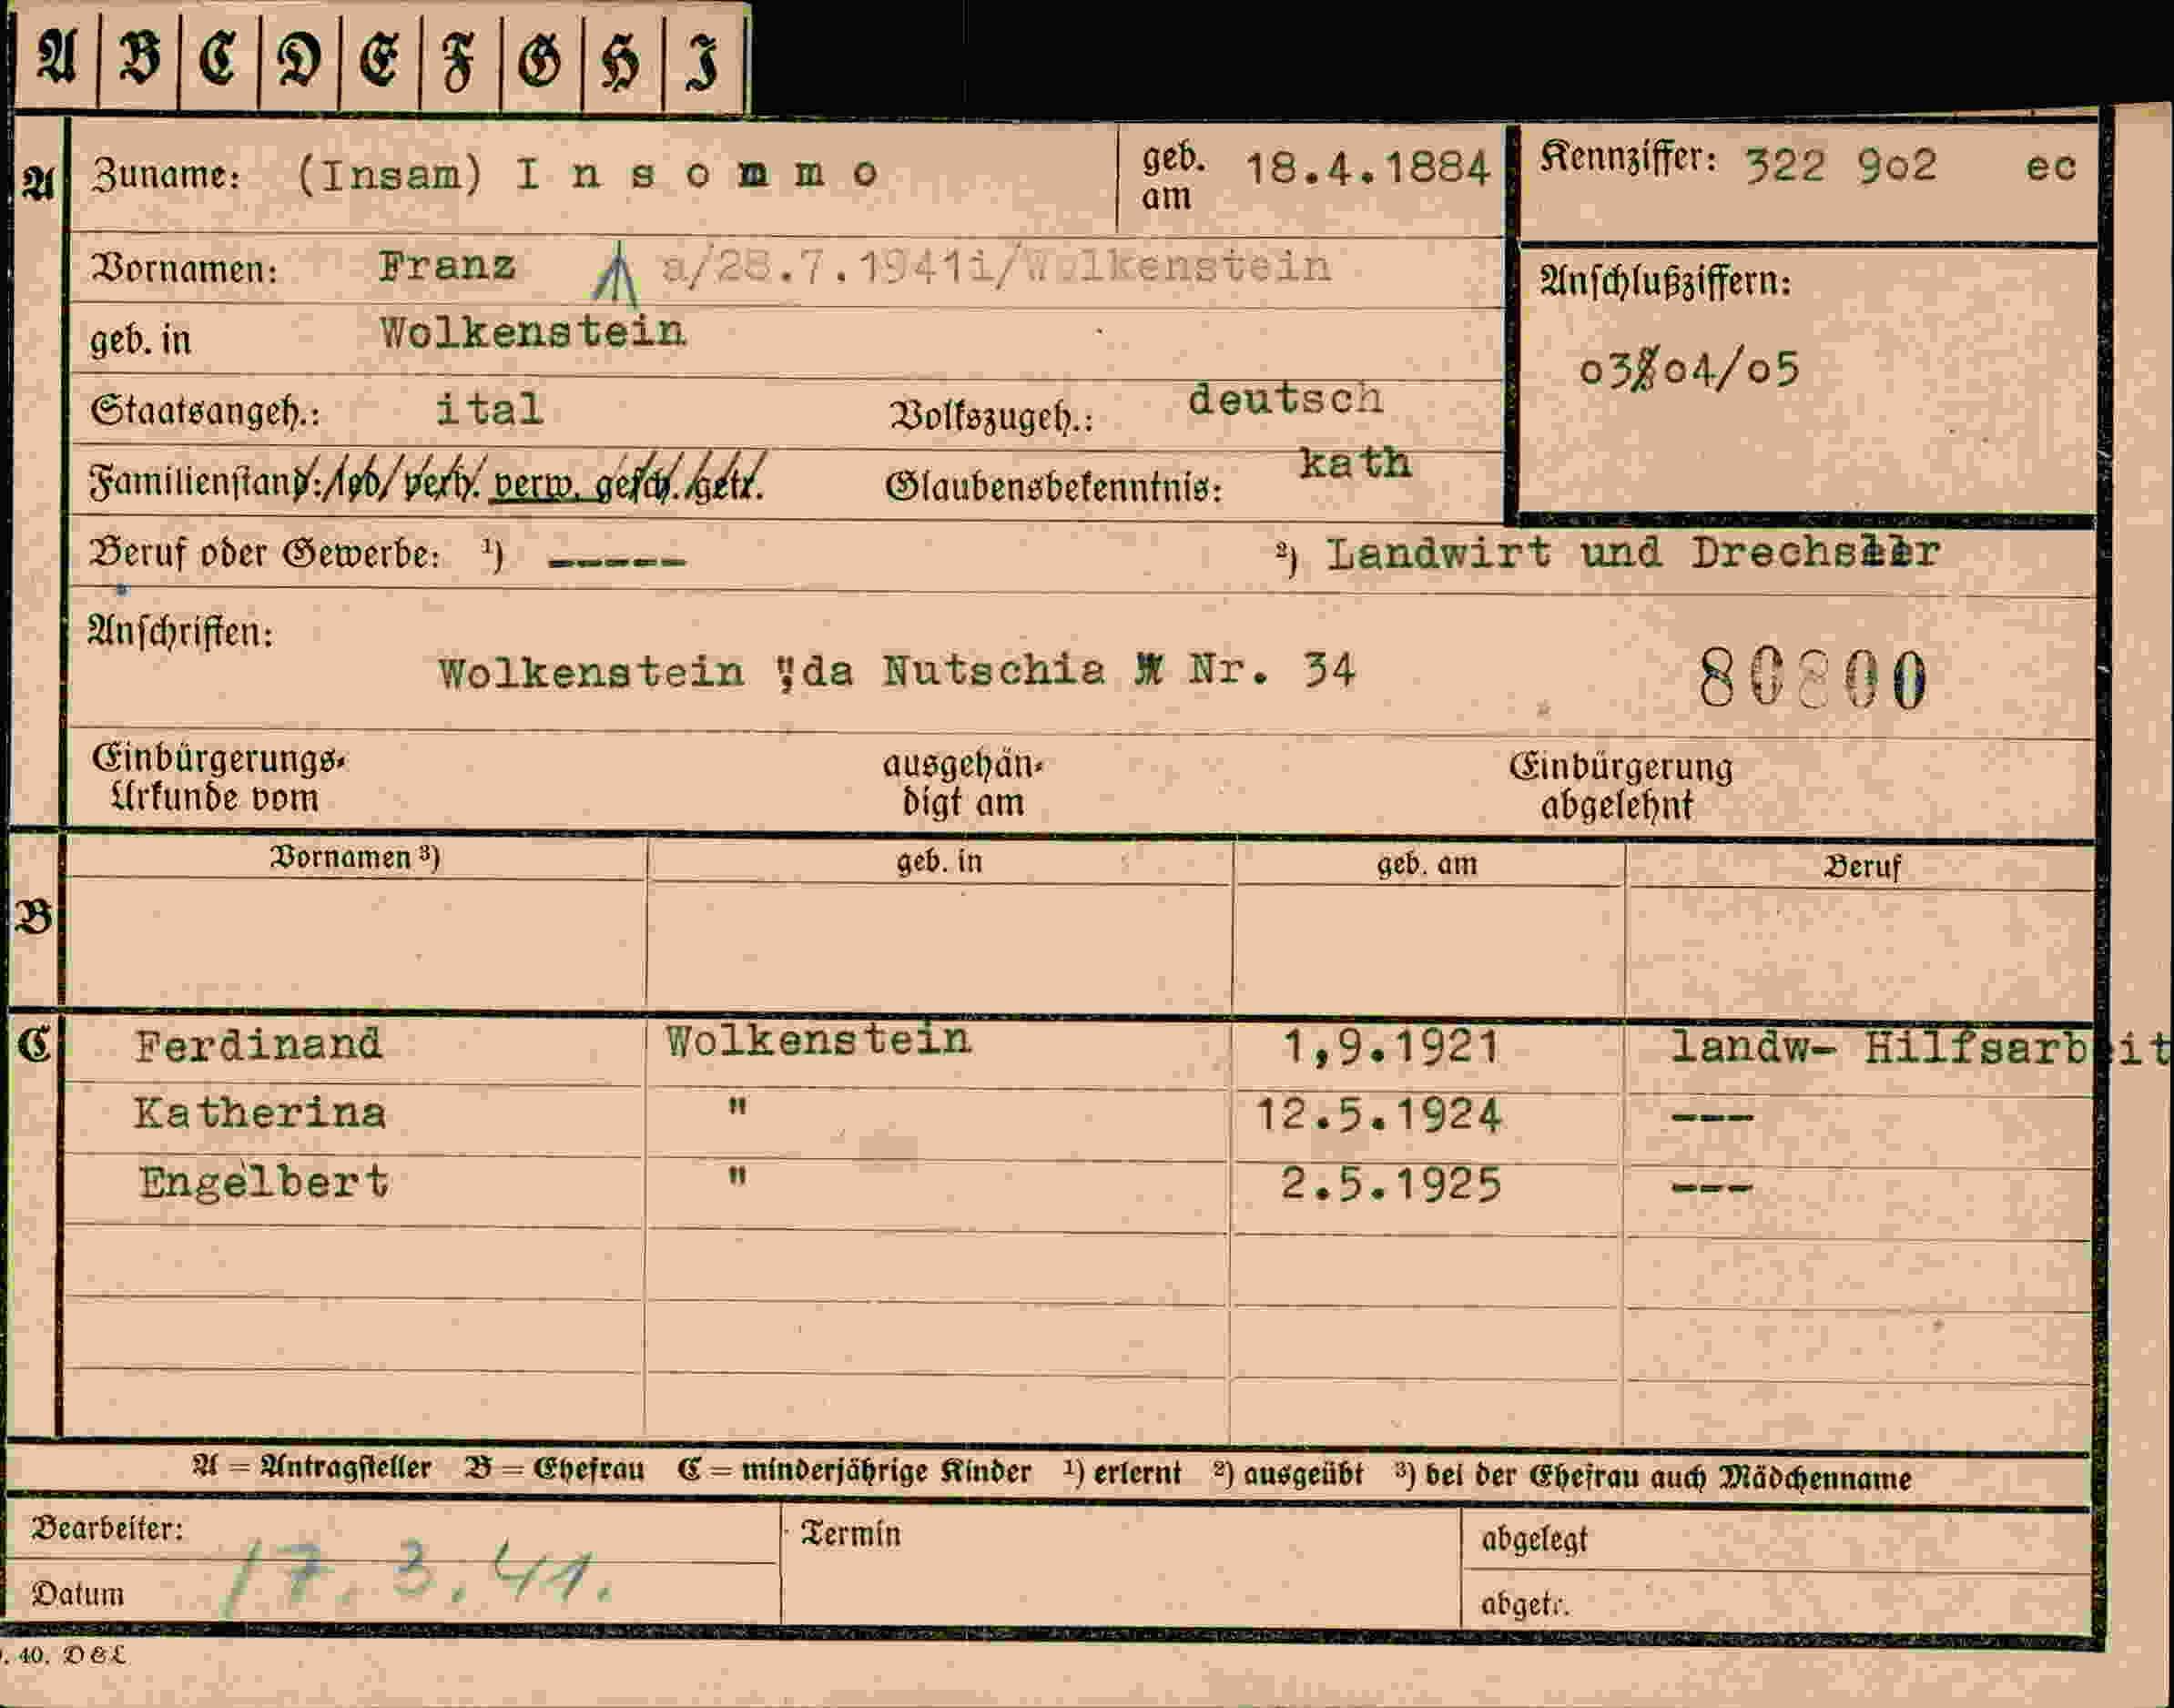 A B C D E F G H I
A Zuname: (Insam) I n s o m m o geb. am 18.4.1884 Kennziffer: 322 9o2 ec
Vornamen: Franz a/28.7.1941i/Wolkenstein
Anschlußziffern:
geb. in Wolkenstein
o3 o4/o5
Staatsangeh.: ital Volkszugeh.: deutsch
Familienstand: led/ verh. verw. gesch. getr. Glaubensbekenntnis: kath
Beruf oder Gewerbe: ¹) ----- ²) Landwirt und Drechsler
Anschriften:
Wolkenstein "da Nutschia " Nr. 34 80800
Einbürgerungs-
Urkunde vom
ausgehän-
digt am
Einbürgerung
abgelehnt
Vornamen ³) geb. in geb. am Beruf
B
C Ferdinand Wolkenstein 1,9.1921 landw- Hilfsarbeit
Katherina " 12.5.1924 ---
Engelbert " 2.5.1925 ---
A = Antragsteller B = Ehefrau C = minderjährige Kinder ¹) erlernt ²) ausgeübt ³) bei der Ehefrau auch Mädchenname
Bearbeiter: Termin abgelegt
Datum 17.3.41. abgetr.
. 40. D & L